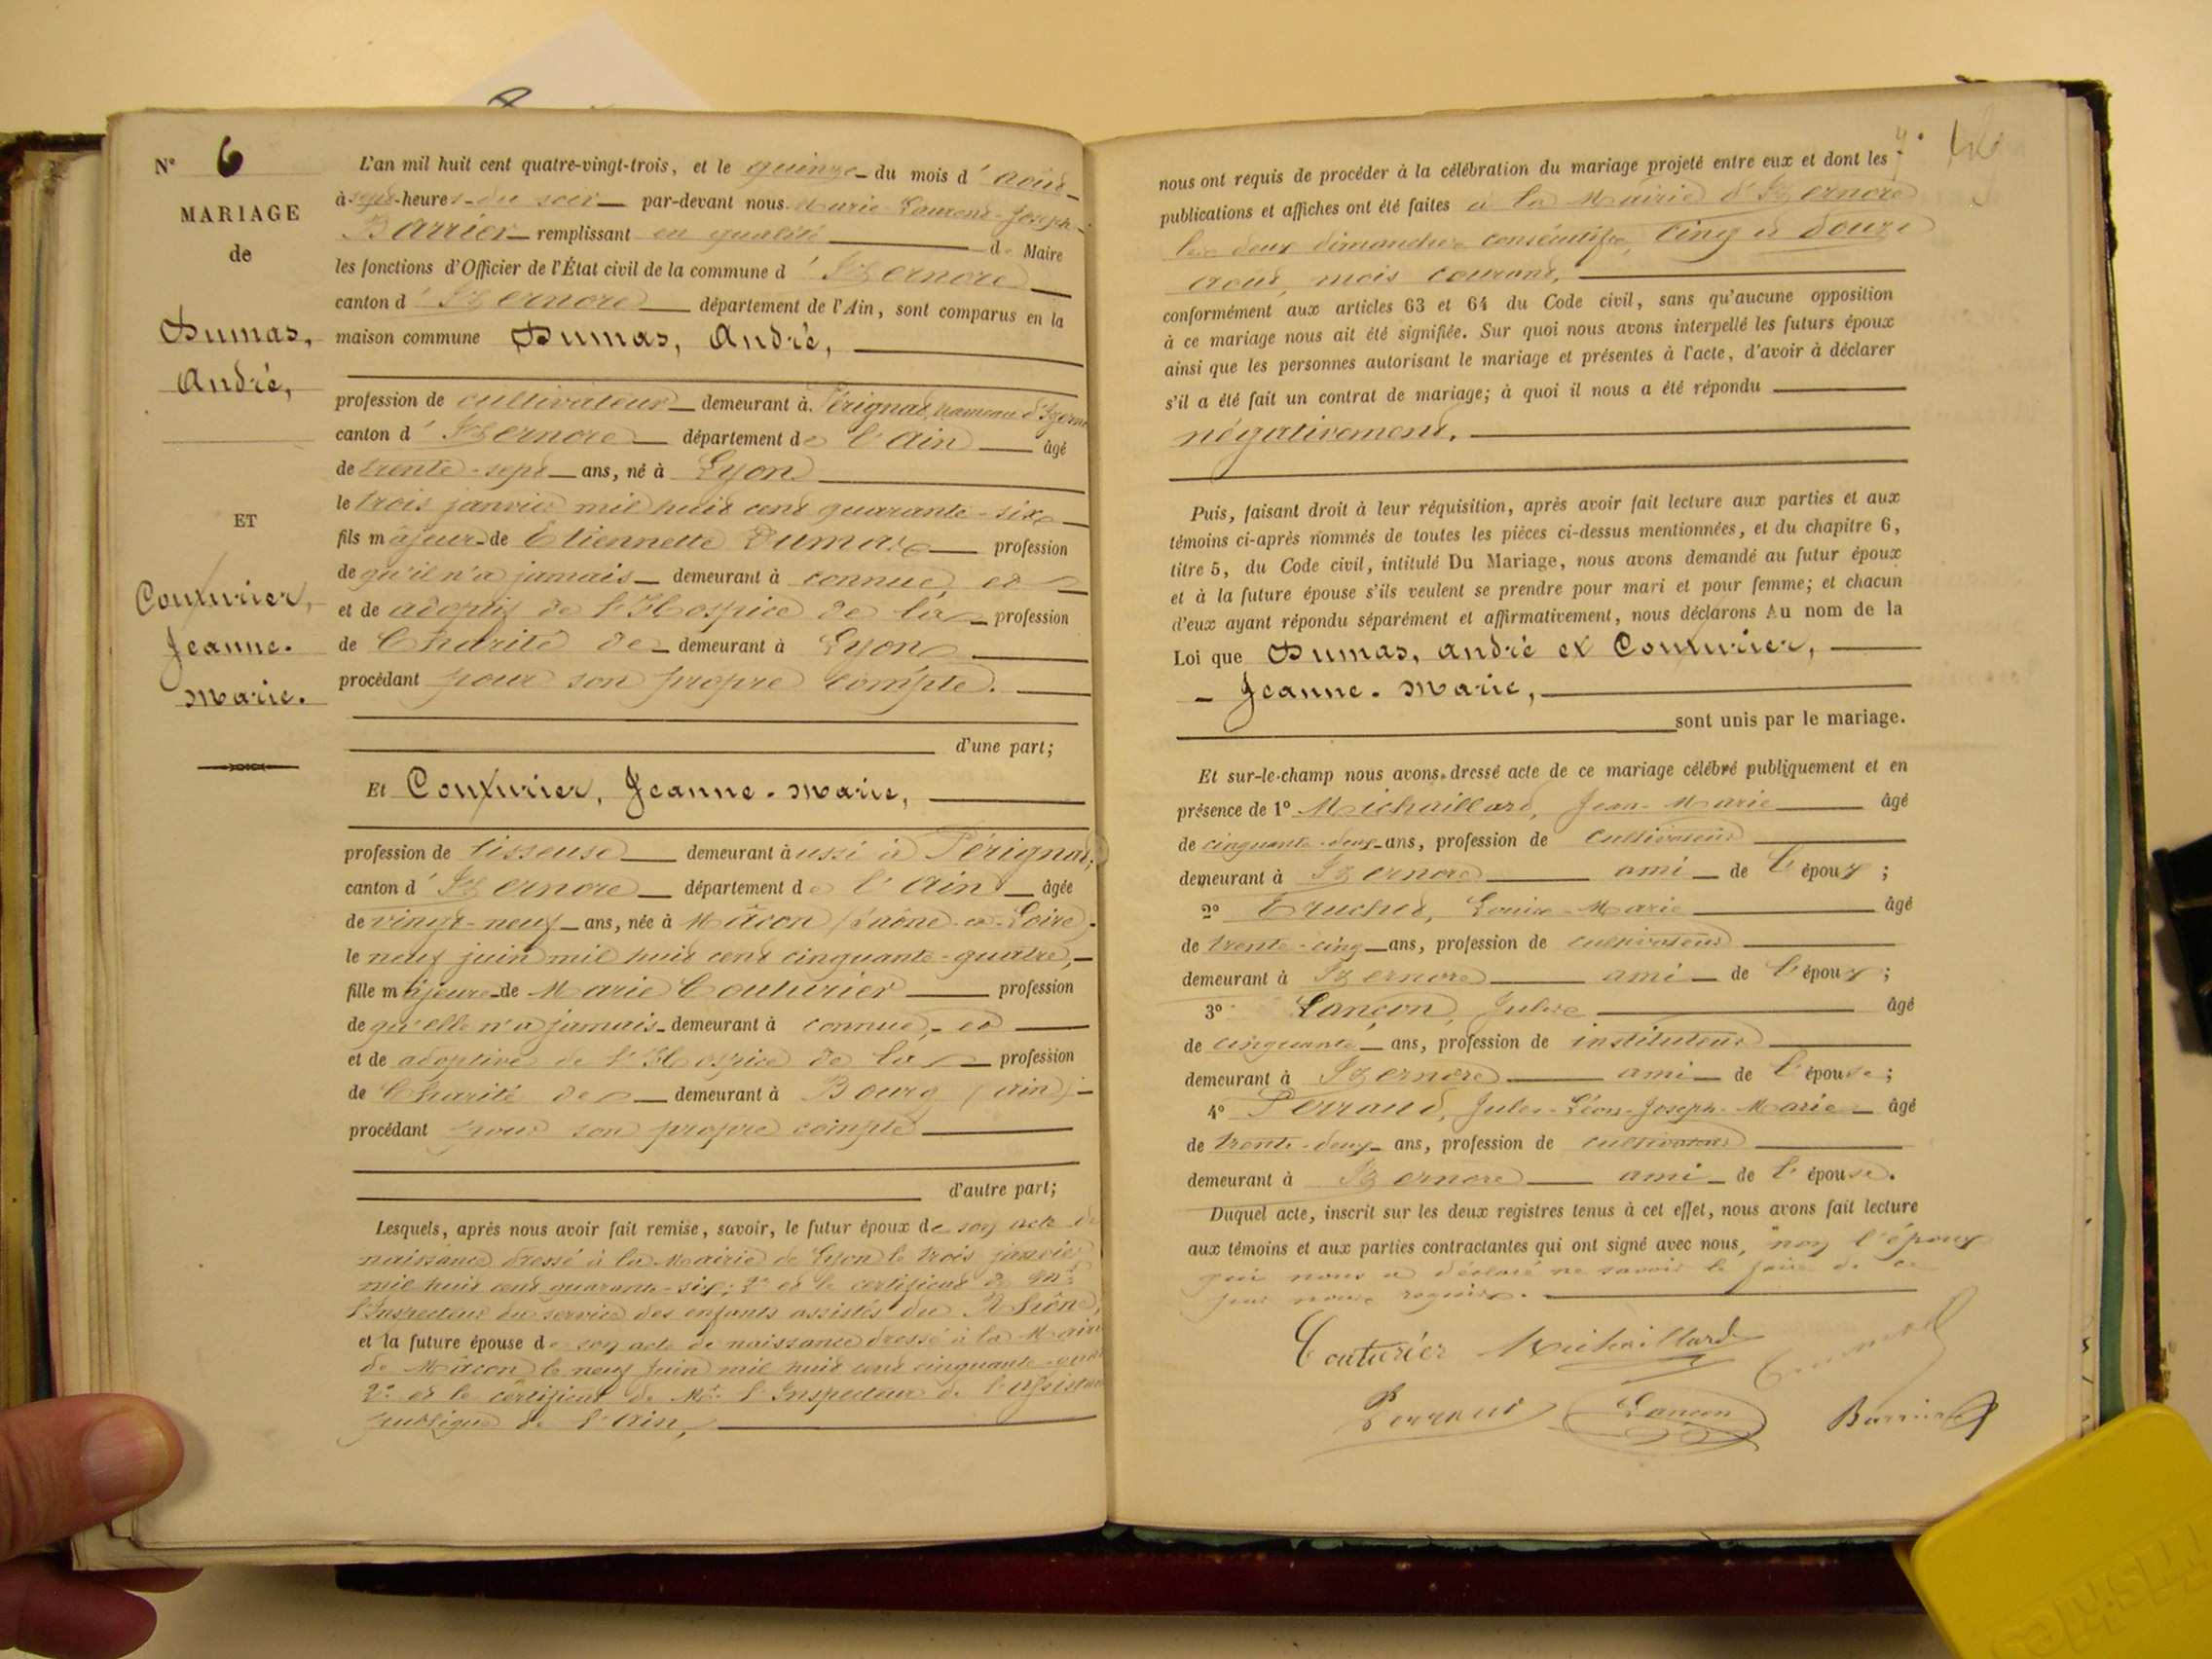 N° 6
MARIAGE
de
Dumas,
André,
ET
Couturier,
Jeanne-
Marie.
L'an mil huit cent quatre-vingt-trois, et le quinze du mois d'août
à sept heures du soir par-devant nous Marie Laurent-Joseph
Barrier remplissant en qualité de Maire
les fonctions d'Officier de l'État civil de la commune d'Izernore
canton d'Izernore département de l'Ain, sont comparus en la
maison commune Dumas, André,
profession de cultivateur demeurant à Pérignat, hameau d'Izernore
canton d'Izernore département de l'Ain âgé
de trente-sept ans, né à Lyon
le trois janvier mil huit cent quarante-six
fils majeur de Etiennette Dumas profession
de qu'il n'a jamais demeurant à connue, et
et de adoptif de l'Hospice de la profession
de Charité de demeurant à Lyon
procédant pour son propre compte.
d'une part;
Et Couturier, Jeanne-Marie,
profession de tisseuse demeurant aussi à Pérignat,
canton d'Izernore département de l'Ain âgée
de vingt-neuf ans, née à Mâcon (Saône-et-Loire)
le neuf juin mil huit cent cinquante-quatre,
fille majeure de Marie Couturier profession
de qu'elle n'a jamais demeurant à connue, et
et de adoptive de l'Hospice de la profession
de Charité de demeurant à Bourg (Ain)
procédant pour son propre compte
d'autre part;
Lesquels, après nous avoir fait remise, savoir, le futur époux de son acte de
naissance dressé à la Mairie de Lyon le trois janvier
mil huit cent quarante-six; 2° et le certificat de Mr
l'Inspecteur du service des enfants assistés du Rhône,
et la future épouse de son acte de naissance dressé à la Mairie
de Mâcon le neuf juin mil huit cent cinquante-quatre
2° et le certificat de Mr l'Inspecteur de l'assistance
publique de l'Ain,
nous ont requis de procéder à la célébration du mariage projeté entre eux et dont les
publications et affiches ont été faites à la Mairie d'Izernore
les deux dimanches consécutifs, cinq et douze
août, mois courant,
conformément aux articles 63 et 64 du Code civil, sans qu'aucune opposition
à ce mariage nous ait été signifiée. Sur quoi nous avons interpellé les futurs époux
ainsi que les personnes autorisant le mariage et présentes à l'acte, d'avoir à déclarer
s'il a été fait un contrat de mariage; à quoi il nous a été répondu
négativement.
Puis, faisant droit à leur réquisition, après avoir fait lecture aux parties et aux
témoins ci-après nommés de toutes les pièces ci-dessus mentionnées, et du chapitre 6,
titre 5, du Code civil, intitulé Du Mariage, nous avons demandé au futur époux
et à la future épouse s'ils veulent se prendre pour mari et pour femme; et chacun
d'eux ayant répondu séparément et affirmativement, nous déclarons Au nom de la
Loi que Dumas, André et Couturier,
Jeanne-Marie,
sont unis par le mariage.
Et sur-le-champ nous avons dressé acte de ce mariage célébré publiquement et en
présence de 1° Michaillard, Jean-Marie âgé
de cinquante-deux ans, profession de cultivateur
demeurant à Izernore ami de l'époux;
2° Truchet, Louis-Marie âgé
de trente-cinq ans, profession de cultivateur
demeurant à Izernore ami de l'époux;
3° Lançon, Jules âgé
de cinquante ans, profession de instituteur
demeurant à Izernore ami de l'épouse;
4° Perraud, Jules-Léon-Joseph-Marie âgé
de trente-deux ans, profession de cultivateur
demeurant à Izernore ami de l'épouse.
Duquel acte, inscrit sur les deux registres tenus à cet effet, nous avons fait lecture
aux témoins et aux parties contractantes qui ont signé avec nous, non l'époux
qui nous a déclaré ne savoir le faire de ce
par nous requis.
Couturier Michaillard
Perraud Lançon Barrier